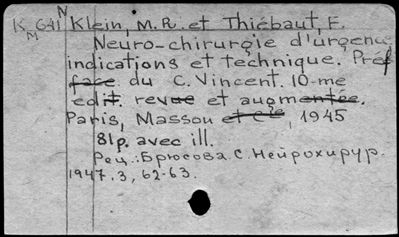 N
K 641 Klein, M. R. et Thiébaut, F.
M
Neuro-chirurgie d'urgence
indications et technique. Préf
face du C. Vincent. 10-me
edit. revue et augmentée.
Paris, Masson et Cie, 1945
81p. avec ill.
Рец.: Брюсова С. Нейрохирур.
1947. 3, 62-63.